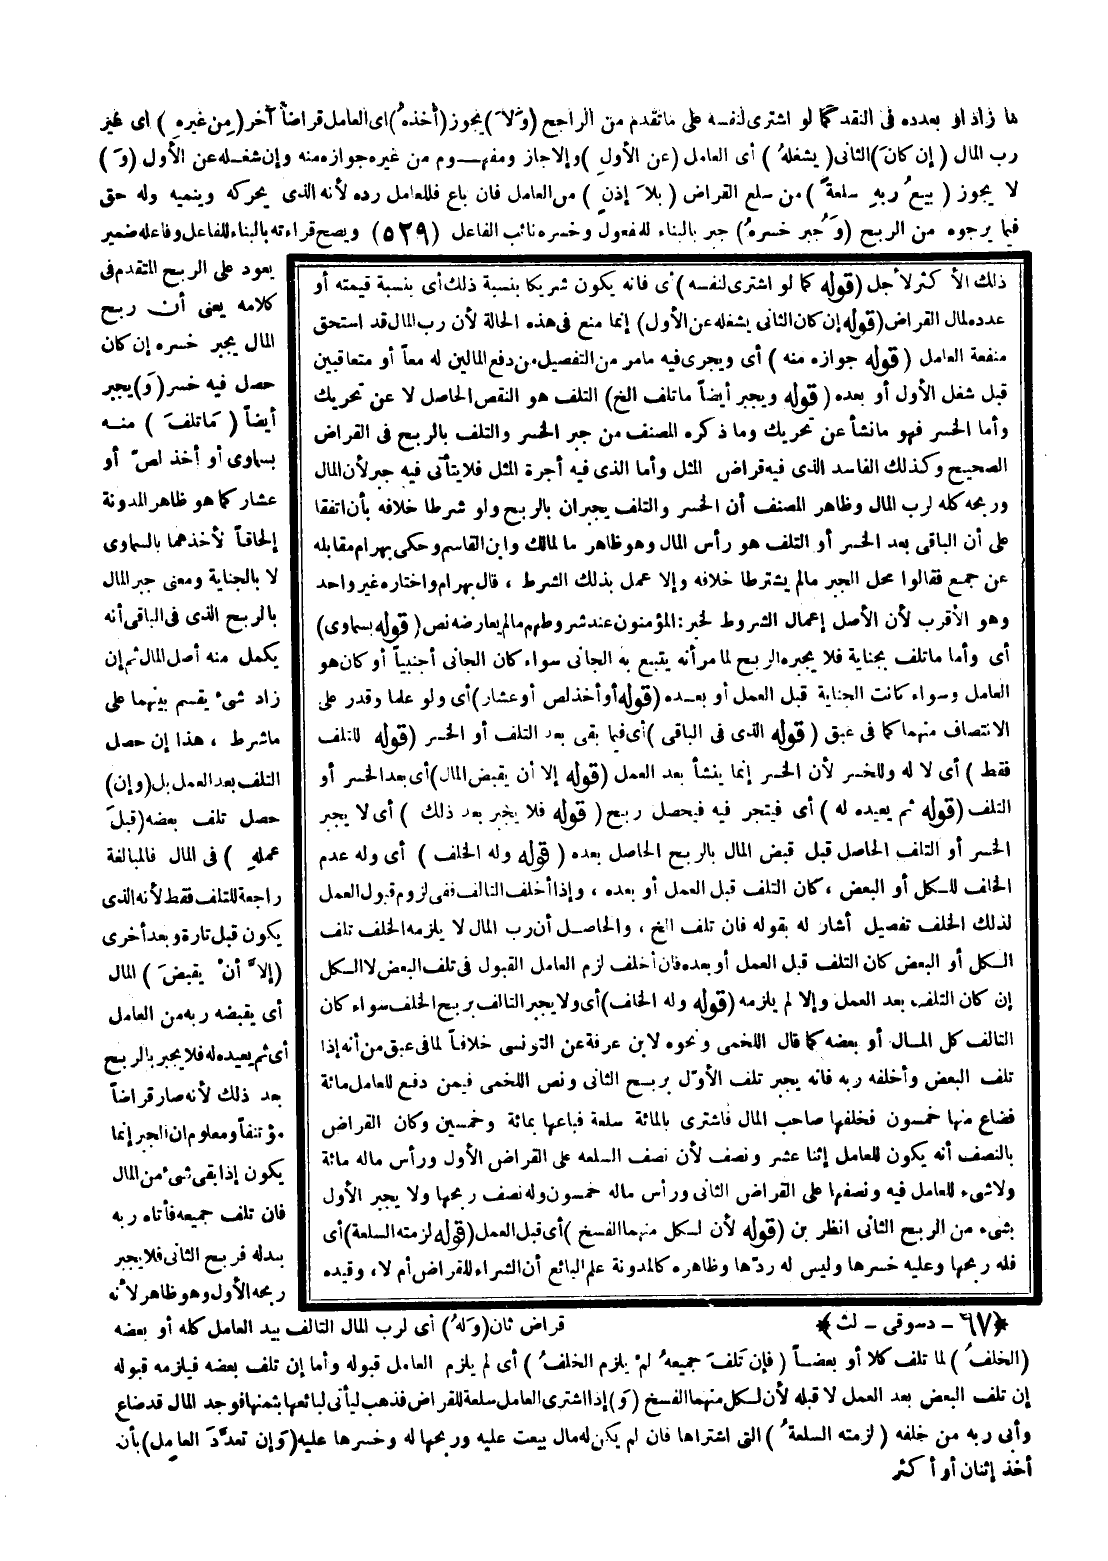 ما زاد أو بعدده فى النقد كما لو اشترى لنفسه على ما تقدم من الراجح (وَلاَ) يجوز (أخذهُ) اى العامل قراضاً آخر (مِن غيرهِ) اى غير
رب المال (إن كانَ) الثانى (يشغلهُ) أى العامل (عن الأولِ) وإلا جاز ومفهوم من غيره جوازه منه وإن شغله عن الأول (وَ)
لا يجوز (بيعُ ربهِ سلعةً) من سلع القراض (بلاَ إذنٍ) من العامل فان باع فللعامل رده لأنه الذى يحركه وينميه وله حق
فيما يرجوه من الربح (وَجُبر خسرهُ) جبر بالبناء للمفعول وخسره نائب الفاعل (٥٢٩) ويصح قراءته بالبناء للفاعل وفاعله ضمير
يعود على الربح المتقدم فى
كلامه يعنى أن ربح
المال يجبر خسره إن كان
حصل فيه خسر (وَ) يجبر
أيضاً (مَا تلفَ) منه
بسماوى أو أخذ لصٍ أو
عشار كما هو ظاهر المدونة
إلحاقاً لأخذهما بالسماوى
لا بالجناية ومعنى جبر المال
بالربح الذى فى الباقى أنه
يكمل منه أصل المال ثم إن
زاد شىء يقسم بينهما على
ما شرط ، هذا إن حصل
التلف بعد العمل بل (وإن)
حصل تلف بعضه (قبلَ
عملهِ) فى المال فالمبالغة
راجعة للتلف فقط لأنه الذى
يكون قبل تارة وبعد أخرى
(إلاَّ أنْ يقبضَ) المال
أى يقبضه ربه من العامل
أى ثم يعيده له فلا يجبر بالربح
بعد ذلك لأنه صار قراضاً
مؤتنفاً ومعلوم ان الجبر إنما
يكون إذا بقى شىء من المال
فان تلف جميعه فأتاه ربه
ببدله فربح الثانى فلا يجبر
ربحه الأول وهو ظاهر لأنه
ذلك الأكثر لأجل (قوله كما لو اشترى لنفسه) أى فانه يكون شريكا بنسبة ذلك أى بنسبة قيمته أو
عدده لمال القراض (قوله إن كان الثانى يشغله عن الأول) إنما منع فى هذه الحالة لأن رب المال قد استحق
منفعة العامل (قوله جوازه منه) أى ويجرى فيه مامر من التفصيل من دفع المالين له معاً أو متعاقبين
قبل شغل الأول أو بعده (قوله ويجبر أيضاً ماتلف الخ) التلف هو النقص الحاصل لا عن تحريك
وأما الخسر فهو مانشأ عن تحريك وما ذكره المصنف من جبر الخسر والتلف بالربح فى القراض
الصحيح وكذلك الفاسد الذى فيه قراض المثل وأما الذى فيه أجرة المثل فلا يتأتى فيه جبر لأن المال
وربحه كله لرب المال وظاهر المصنف أن الخسر والتلف يجبران بالربح ولو شرطا خلافه بأن اتفقا
على أن الباقى بعد الخسر أو التلف هو رأس المال وهو ظاهر ما لمالك وابن القاسم وحكى بهرام مقابله
عن جمع فقالوا محل الجبر مالم يشترطا خلافه وإلا عمل بذلك الشرط ، قال بهرام واختاره غير واحد
وهو الأقرب لأن الأصل إعمال الشروط لخبر : المؤمنون عند شروطهم مالم يعارضه نص (قوله بسماوى)
أى وأما ماتلف بجناية فلا يجبره الربح لما مر أنه يتبع به الجانى سواء كان الجانى أجنبياً أو كان هو
العامل وسواء كانت الجناية قبل العمل أو بعده (قوله أو أخذ لص أو عشار) أى ولو علما وقدر على
الانتصاف منهما كما فى عبق (قوله الذى فى الباقى) أى فيما بقى بعد التلف أو الخسر (قوله للتلف
فقط) أى لا له وللخسر لأن الخسر إنما ينشأ بعد العمل (قوله إلا أن يقبض المال) أى بعد الخسر أو
التلف (قوله ثم يعيده له) أى فيتجر فيه فيحصل ربح (قوله فلا يجبر بعد ذلك) أى لا يجبر
الخسر أو التلف الحاصل قبل قبض المال بالربح الحاصل بعده (قوله وله الخلف) أى وله عدم
الخلف للكل أو البعض ، كان التلف قبل العمل أو بعده ، وإذا أخلف التالف ففى لزوم قبول العمل
لذلك الخلف تفصيل أشار له بقوله فان تلف الخ ، والحاصل أن رب المال لا يلزمه الخلف تلف
الكل أو البعض كان التلف قبل العمل أو بعده فان أخلف لزم العامل القبول فى تلف البعض لا الكل
إن كان التلف بعد العمل وإلا لم يلزمه (قوله وله الخلف) أى ولا يجبر التالف بربح الخلف سواء كان
التالف كل المال أو بعضه كما قال اللخمى ونحوه لابن عرفة عن التونسى خلافاً لما فى عبق من أنه إذا
تلف البعض وأخلفه ربه فانه يجبر تلف الأوّل بربح الثانى ونص اللخمى فيمن دفع للعامل مائة
فضاع منها خمسون فخلفها صاحب المال فاشترى بالمائة سلعة فباعها بمائة وخمسين وكان القراض
بالنصف أنه يكون للعامل إثنا عشر ونصف لأن نصف السلعه على القراض الأول ورأس ماله مائة
ولا شىء للعامل فيه ونصفها على القراض الثانى ورأس ماله خمسون وله نصف ربحها ولا يجبر الأول
بشىء من الربح الثانى انظر بن (قوله لأن لكل منهما الفسخ) أى قبل العمل (قوله لزمته السلعة) أى
فله ربحها وعليه خسرها وليس له ردّها وظاهره كالمدونة علم البائع أن الشراء للقراض أم لا ، وقيده
﴿٦٧ – دسوقى – لث﴾
قراض ثان (وَلهُ) أى لرب المال التالف بيد العامل كله أو بعضه
(الخلفُ) لما تلف كلا أو بعضاً (فإن تَلفَ جميعهُ لمْ يلزم الخلفُ) أى لم يلزم العامل قبوله وأما إن تلف بعضه فيلزمه قبوله
إن تلف البعض بعد العمل لا قبله لأن لكل منهما الفسخ (وَ) إذا اشترى العامل سلعة للقراض فذهب ليأتى لبائعها بثمنها فوجد المال قد ضاع
وأبى ربه من خلفه (لزمته السلعةُ) التى اشتراها فان لم يكن له مال بيعت عليه وربحها له وخسرها عليه (وَإن تعدَّدَ العامِل) بأن
أخذ إثنان أو أكثر